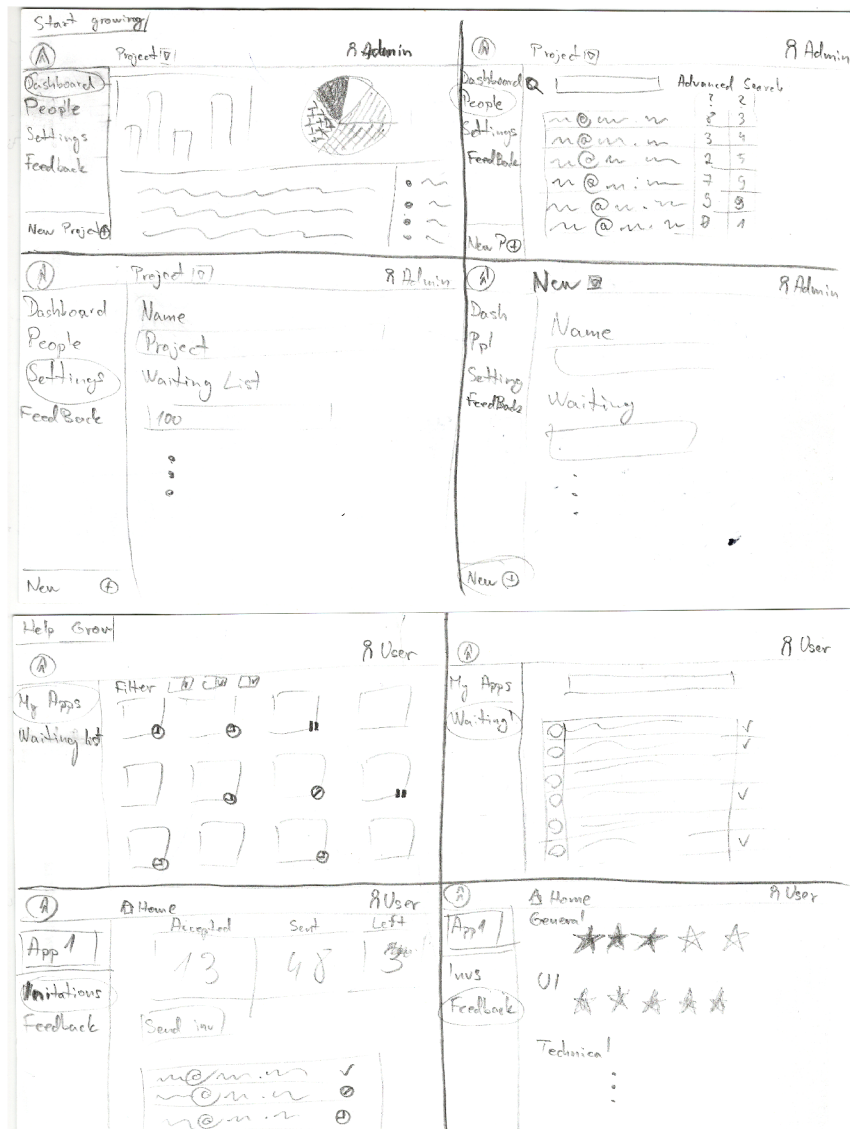 Start growing
Project
Admin
Dashboard
People
Settings
Feedback
New Project
Project
Admin
Dashboard
People
Settings
FeedBack
New P
Advanced Search
? 2
8 3
3 4
2 5
7 9
9 9
8 1
Project
Admin
Dashboard
People
Settings
FeedBack
New
Name
Project
Waiting List
100
New
Admin
Dash
Ppl
Setting
FeedBack
New
Name
Waiting
Help Grow
User
My Apps
Waiting list
Filter
User
My Apps
Waiting!
Home
User
App 1
Invitations
Feedback
Accepted Sent Left
13 48 3
Send inv
Home
User
App 1
Invs
Feedback
General
UI
Technical